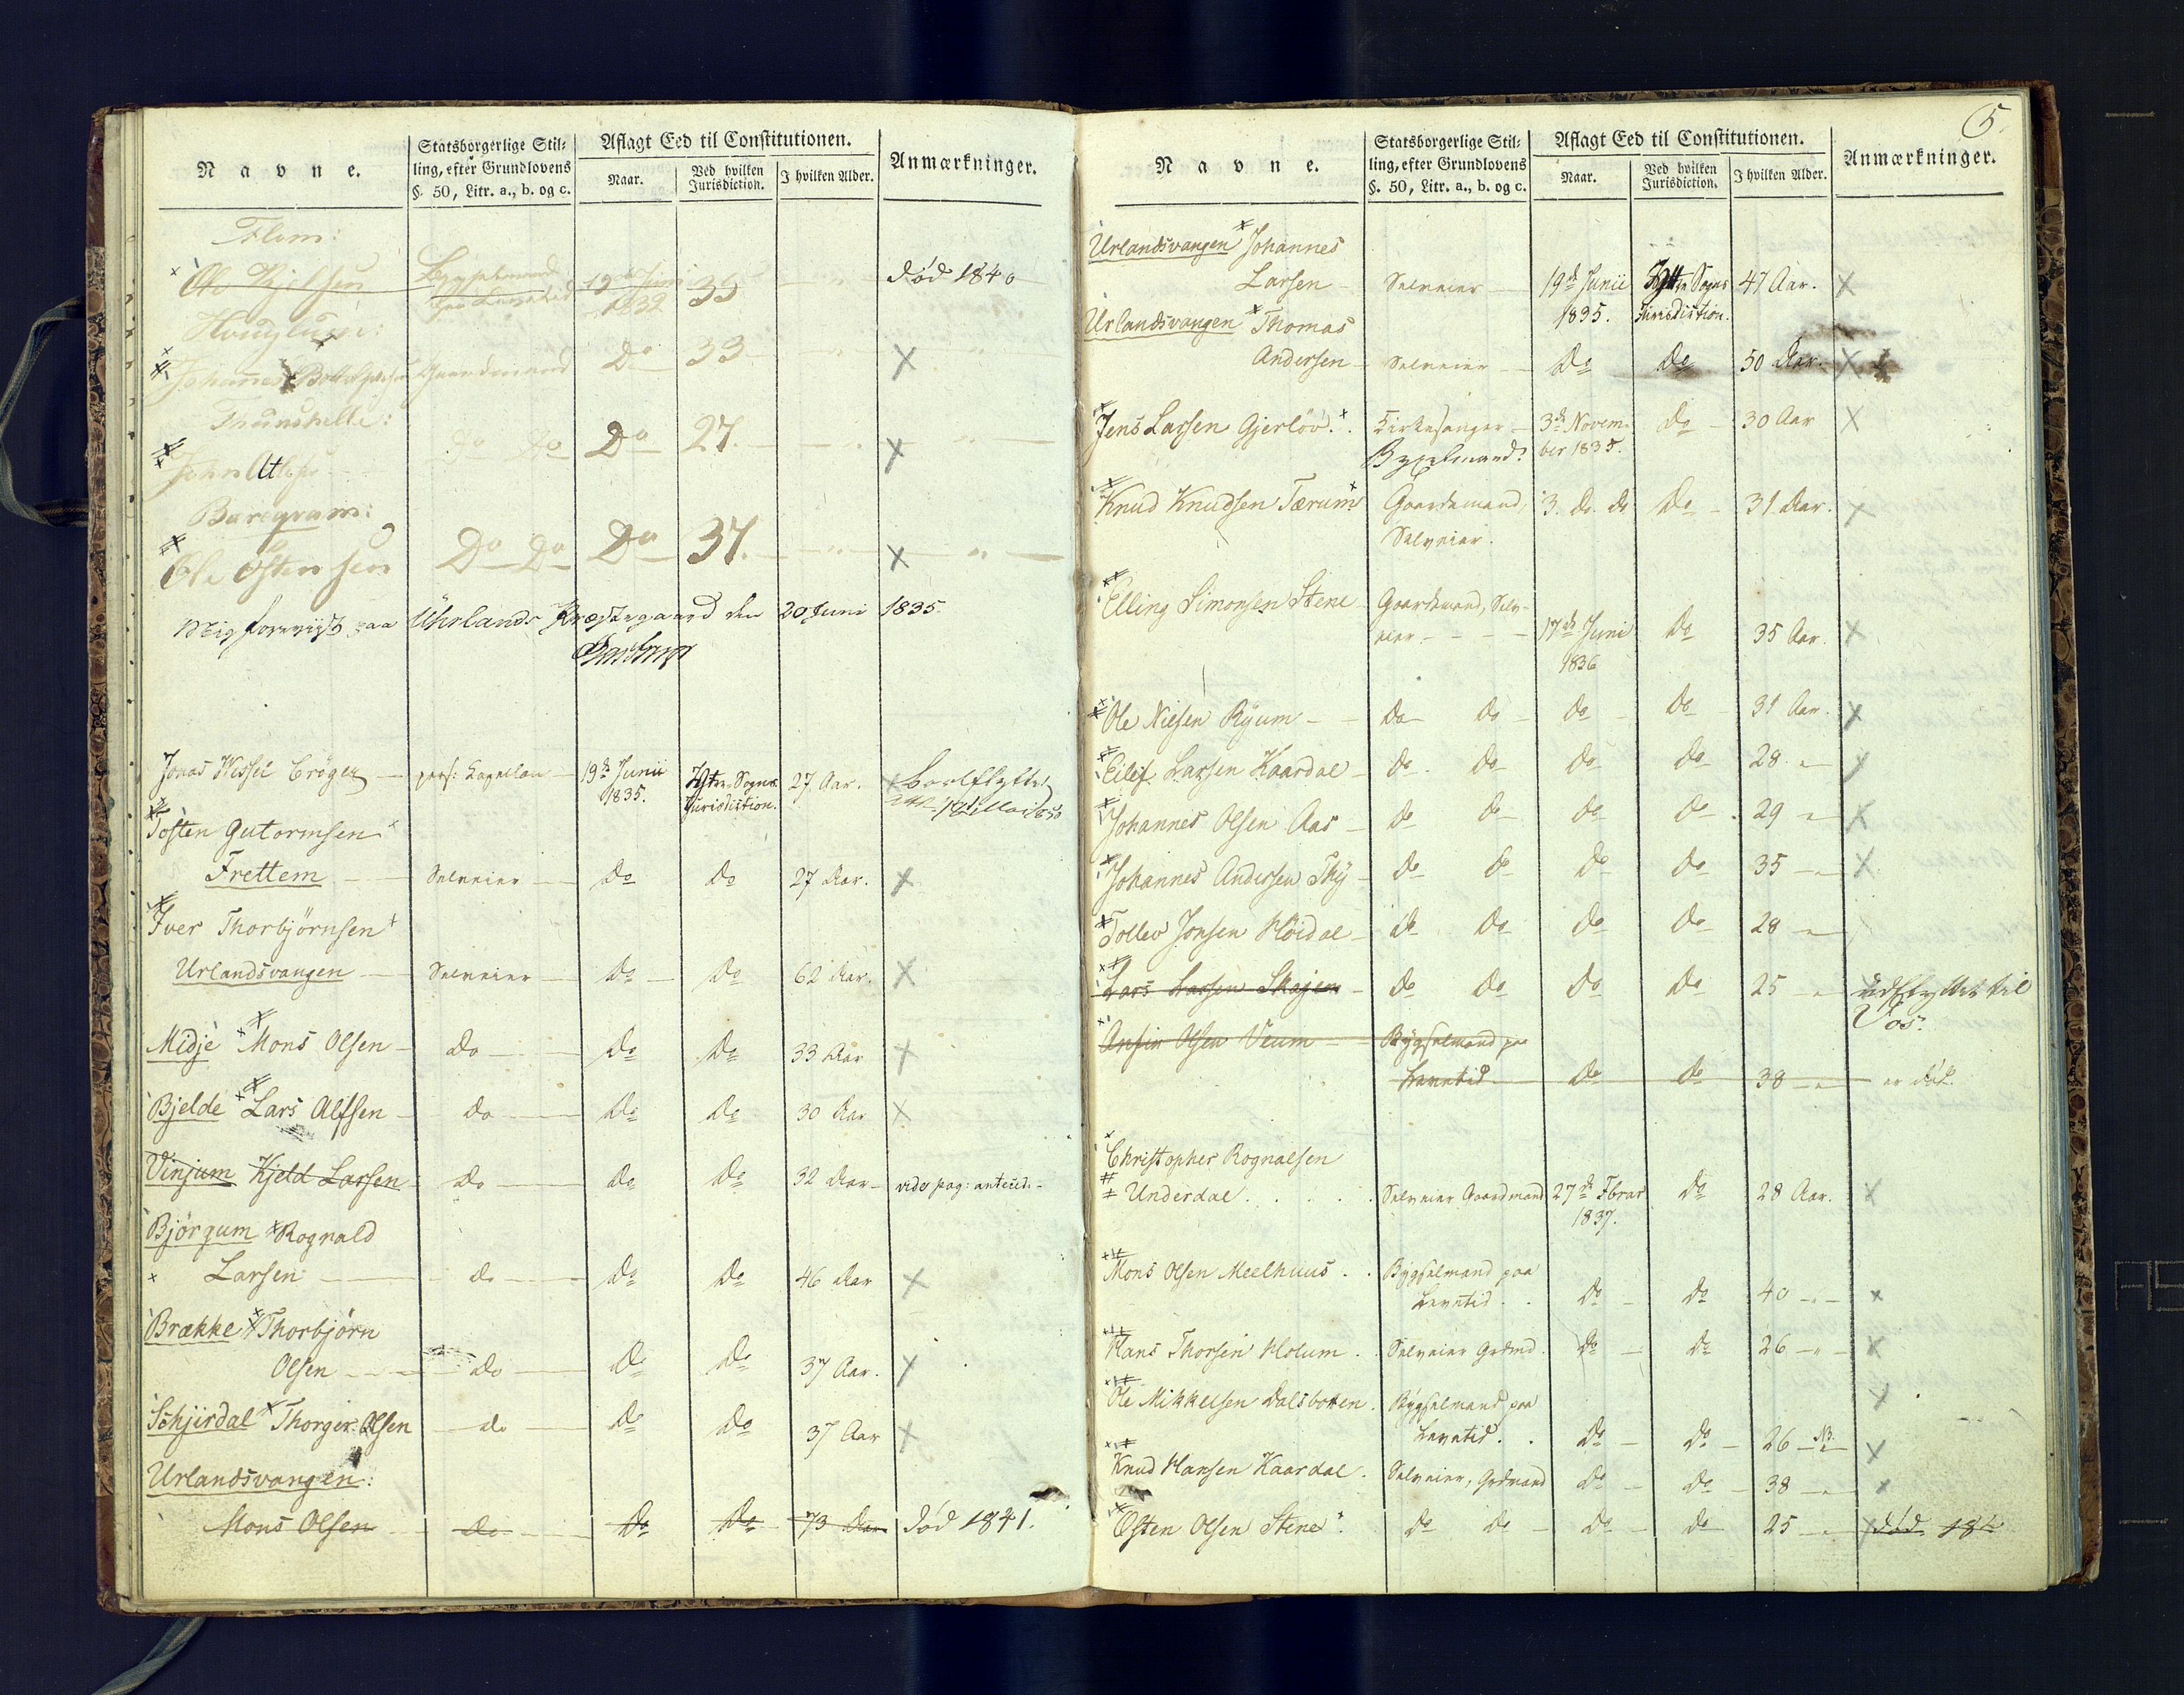 Navne.
Statsborgerlige Stil-
ling, efter Grundlovens
§. 50, Litr. a., b. og c.
Aflagt Eed til Constitutionen.
Naar.
Ved hvilken
Jurisdiction.
I hvilken Alder.
Anmærkninger.
Flom:
Ole Kjelsen Bygselmand 19de Juni 35 død 1840
paa Levetid 1832
Johannes Gaardmand Do 33 ×
Do Do Do 27. ×
John
Do Do Do 37. ×
Ole Østensen
Mig foreviist paa Uhrlands Præstegaard den 20 Juni 1835
Jonas Wessel Crøger pers: Kapellan 19de Junii Yttre Sogns 27 Aar. bortflyttet
1835. Jurisdiction.
Tosten Gutormsen
Frettem Selveier Do Do 27 Aar. ×
Iver Thorbjørnsen
Urlandsvangen Selveier Do Do 62 Aar. ×
Midje Mons Olsen do Do Do 33 Aar ×
Bjelde Lars Alfsen do Do Do 30 Aar ×
Vinjum Kjeld Larsen do Do Do 32 Aar vide pag: anteced:
Bjørgum Rognald
Larsen do Do Do 46 Aar ×
Brække Thorbjørn
Olsen do Do Do 37 Aar. ×
Schjirdal Thorger Olsen do Do Do 37 Aar ×
Urlandsvangen:
Mons Olsen do Do Do 73 Aar død 1841.
5.
Navne.
Statsborgerlige Stil-
ling, efter Grundlovens
§. 50, Litr. a., b. og c.
Aflagt Eed til Constitutionen.
Naar.
Ved hvilken
Jurisdiction.
I hvilken Alder.
Anmærkninger.
Urlandsvangen Johannes
Larsen Selveier 19de Junii Yttre Sogns 47 Aar. ×
1835. Jurisdiction.
Urlandsvangen Thomas
Andersen Selveier Do Do 50 Aar. ×
Jens Larsen Gjerløv. Kirkesanger 3de Novem- Do 30 Aar ×
Bygselmand ber 1835.
Knud Knudsen Tærum Gaardemand, 3. do. do Do 31 Aar. ×
Selveier.
Elling Simonsen Stene Gaardemand, Selv-
eier 17de Juni Do 35 Aar. ×
1836
Ole Nielsen Ryum Do Do Do Do 31 Aar. ×
Eilif Larsen Kaardal Do Do Do Do 28 ×
Johannes Olsen Aas Do Do Do Do 29 ×
Johannes Andersen Thy Do Do Do Do 35 ×
Tollev Jonsen Høidal Do Do Do Do 28
Lars Larsen Skajem Do Do Do Do 25 udflyttet til
Vos.
Anfin Olsen Veum Bygselmand paa
Levetid Do Do 38 er død.
Christopher Rognalsen
Underdal Selveier Gaardmand 27de Fbrar Do 28 Aar. ×
1837.
Mons Olsen Meelhuus Bygselmand paa
Levetid Do Do 40 ×
Hans Thorsen Holum Selveier Grdmd. Do Do 26 ×
Ole Mikkelsen Dalsbotten. Bygselmand paa ×
Levetid. Do Do 26 NB. ×
Knud Hansen Kaardal Selveier, Grdmand Do Do 38 ×
Østen Olsen Stene Do Do Do Do 25 død 184